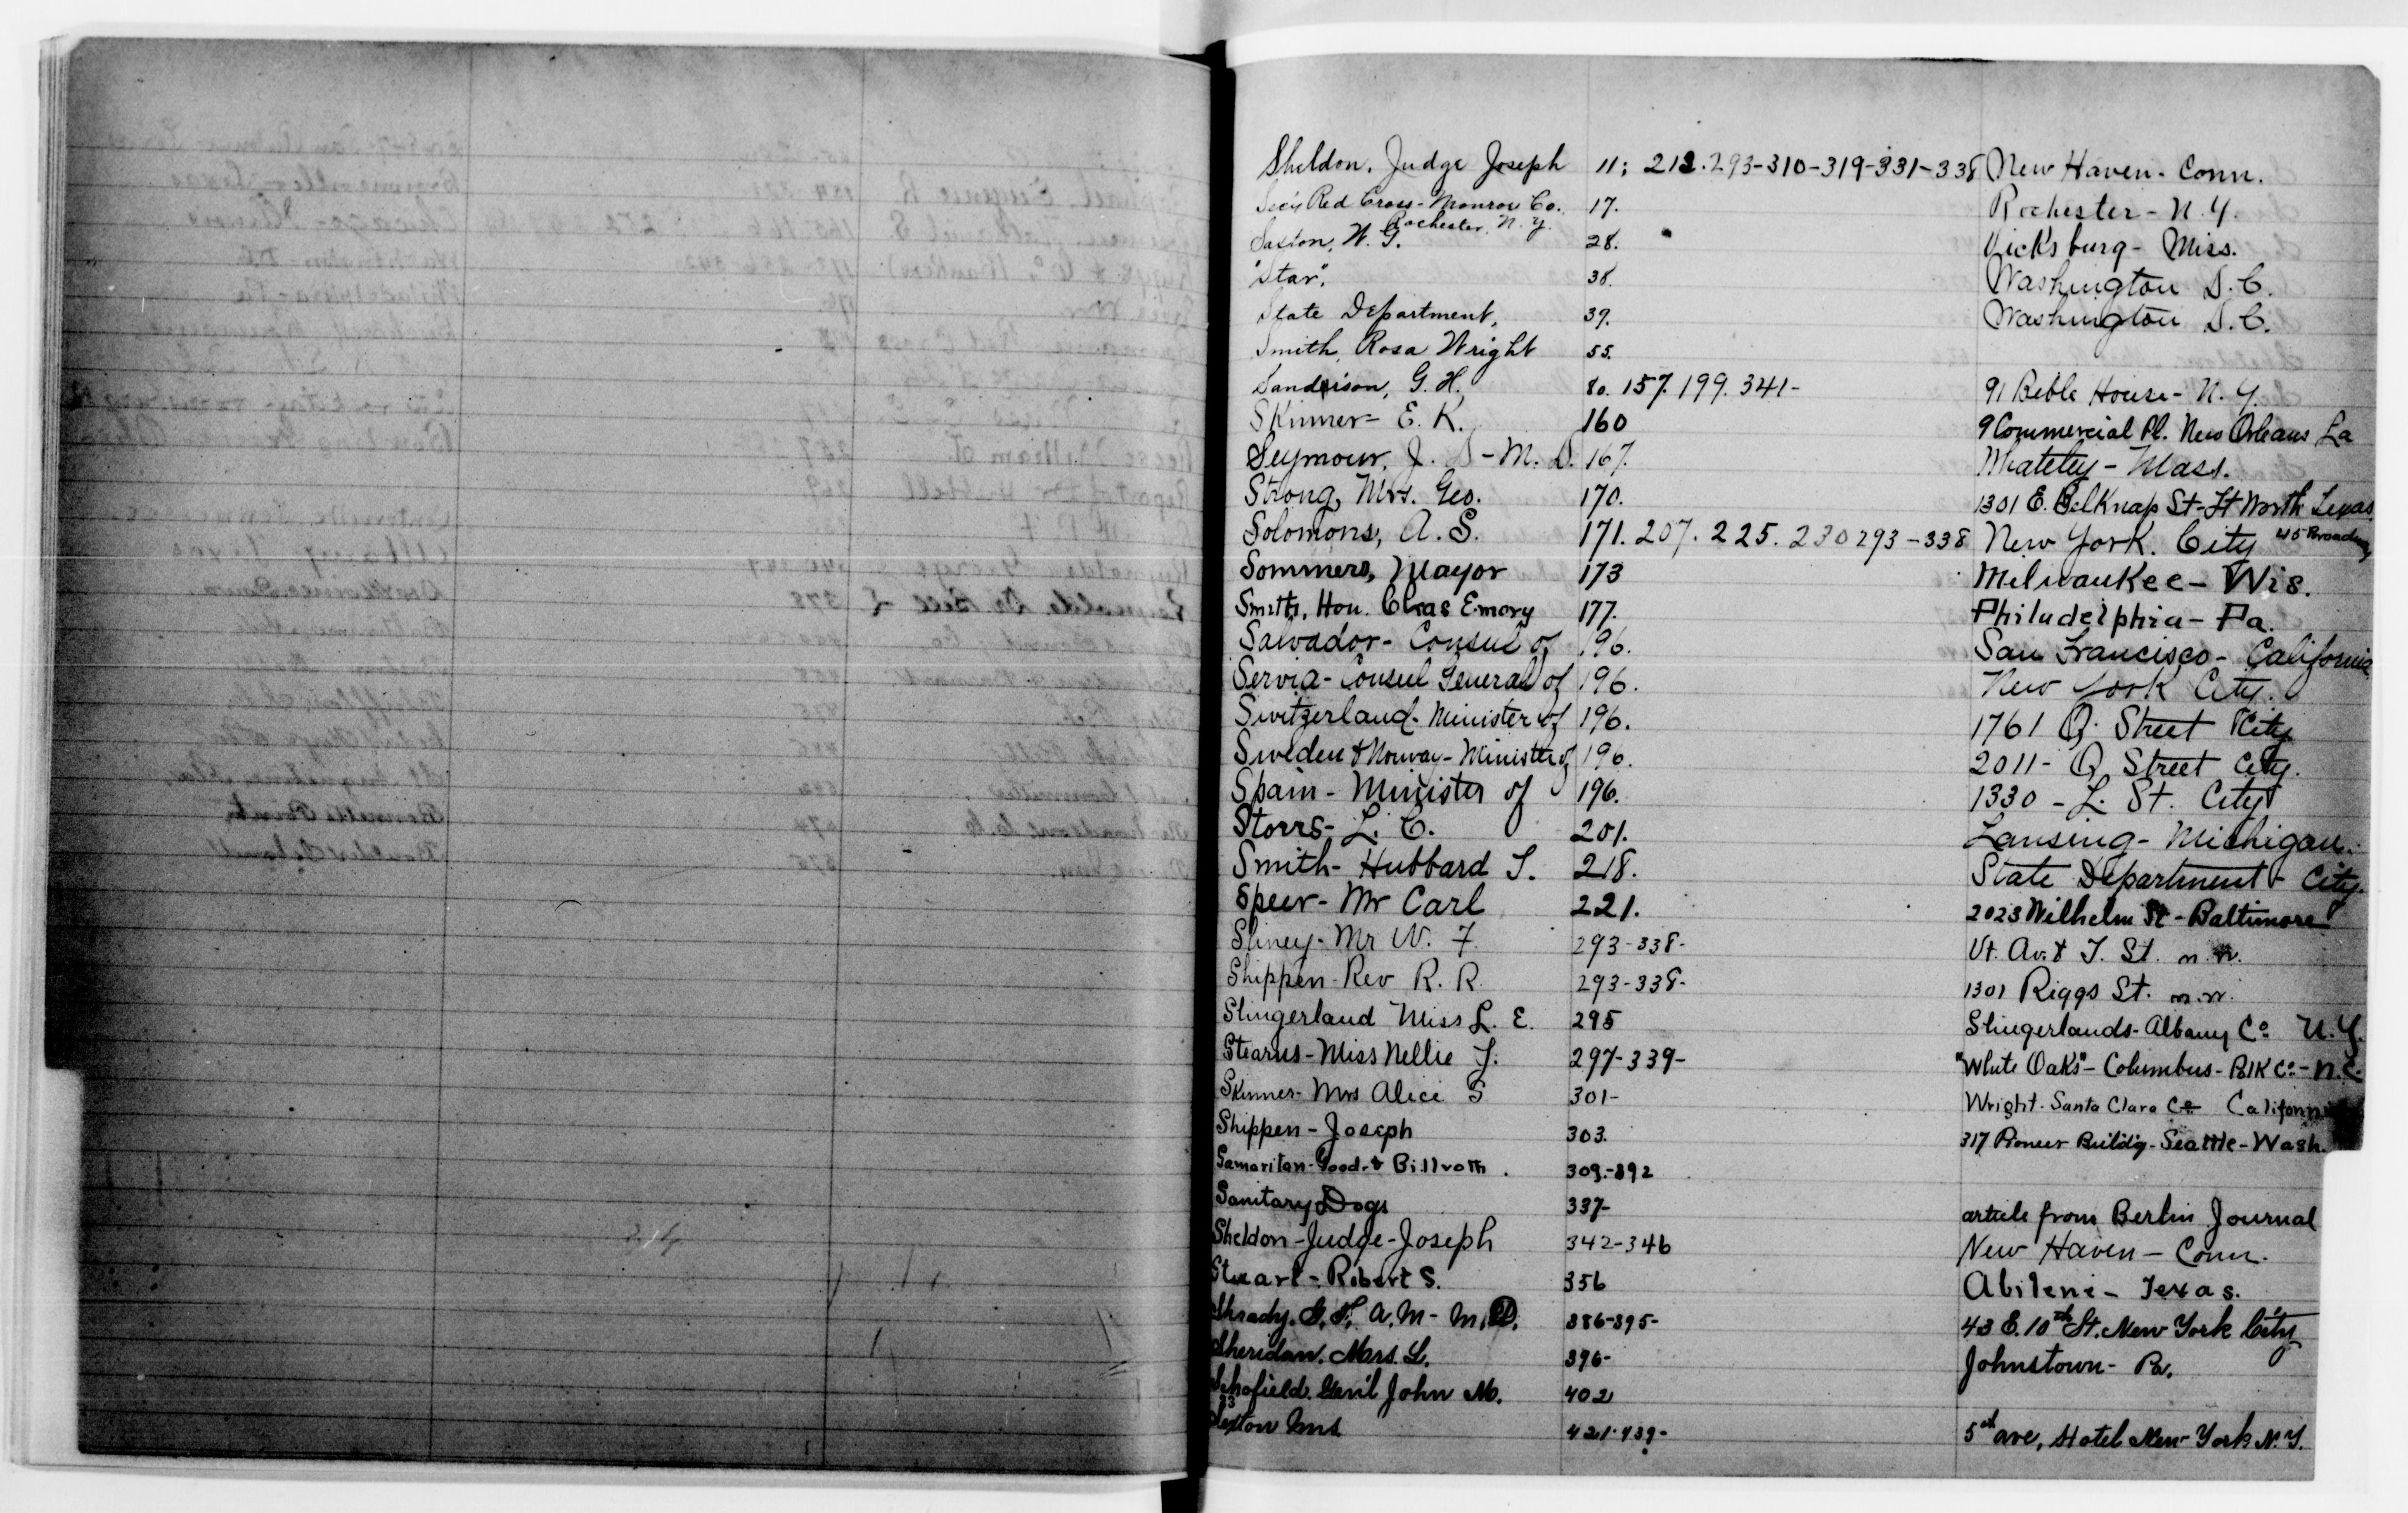 Sheldon, Judge Joseph 11; 212. 293-310-319-331-338 New Haven - Conn.
Sec'y Red Cross - Monroe Co. 17. Rochester - N.Y.
Rochester, N.Y.
Saxton, W. G. 28. Vicksburg - Miss.
"Star", 38. Washington D.C.
State Department, 39. Washington D.C.
Smith, Rosa Wright 55.
Sandison, G. H. 80. 157. 199. 341- 91 Bible House - N.Y.
Skinner - E. K. 160 9 Commercial Pl. New Orleans La
Seymour, J. S - M. D. 167. Whateley - Mass.
Strong, Mrs. Geo. 170. 1301 E. Belknap St - Ft Worth Texas
Solomons, A. S. 171. 207. 225. 230 293-338 New York. City 45 Broadway
Sommers, Mayor 173 Milwaukee - Wis.
Smith, Hon. Chas Emory 177. Philadelphia - Pa.
Salvador - Consul of 196. San Francisco - California
Servia - Consul General of 196. New York City.
Switzerland - Minister of 196. 1761 Q. Street City
Sweden & Norway - Minister of 196. 2011 - Q Street City.
Spain - Minister of 196. 1330 - L. St. City
Storrs - L. C. 201. Lansing - Michigan.
Smith - Hubbard T. 218. State Department - City.
Speer - Mr Carl 221. 2023 Wilhelm St - Baltimore
Sliney - Mr W. F. 293-338- Vt. Av. & T. St. n.w.
Shippen - Rev R. R. 293-338- 1301 Riggs St. n.w.
Slingerland Miss L. E. 295 Slingerlands - Albany Co. N.Y.
Stearns - Miss Nellie F. 297-339- "White Oaks" - Columbus - Polk Co. - N.C.
Skinner - Mrs Alice S 301- Wright - Santa Clara Co California
Shippen - Joseph 303. 317 Pioneer Buildg - Seattle - Wash.
Samaritan - Good - & Billroth. 309-392
Sanitary Dogs 337- article from Berlin Journal
Sheldon - Judge - Joseph 342-346 New Haven - Conn.
Stuart - Robert S. 356 Abilene - Texas.
Shrady, G. F. A. M - M. D. 386-395- 43 E. 10th St. New York City
Sheridan, Mars. L. 396- Johnstown - Pa.
Schofield, Gen'l John M. 402
Sexton Mrs 421-439- 5th ave, Hotel New York N.Y.